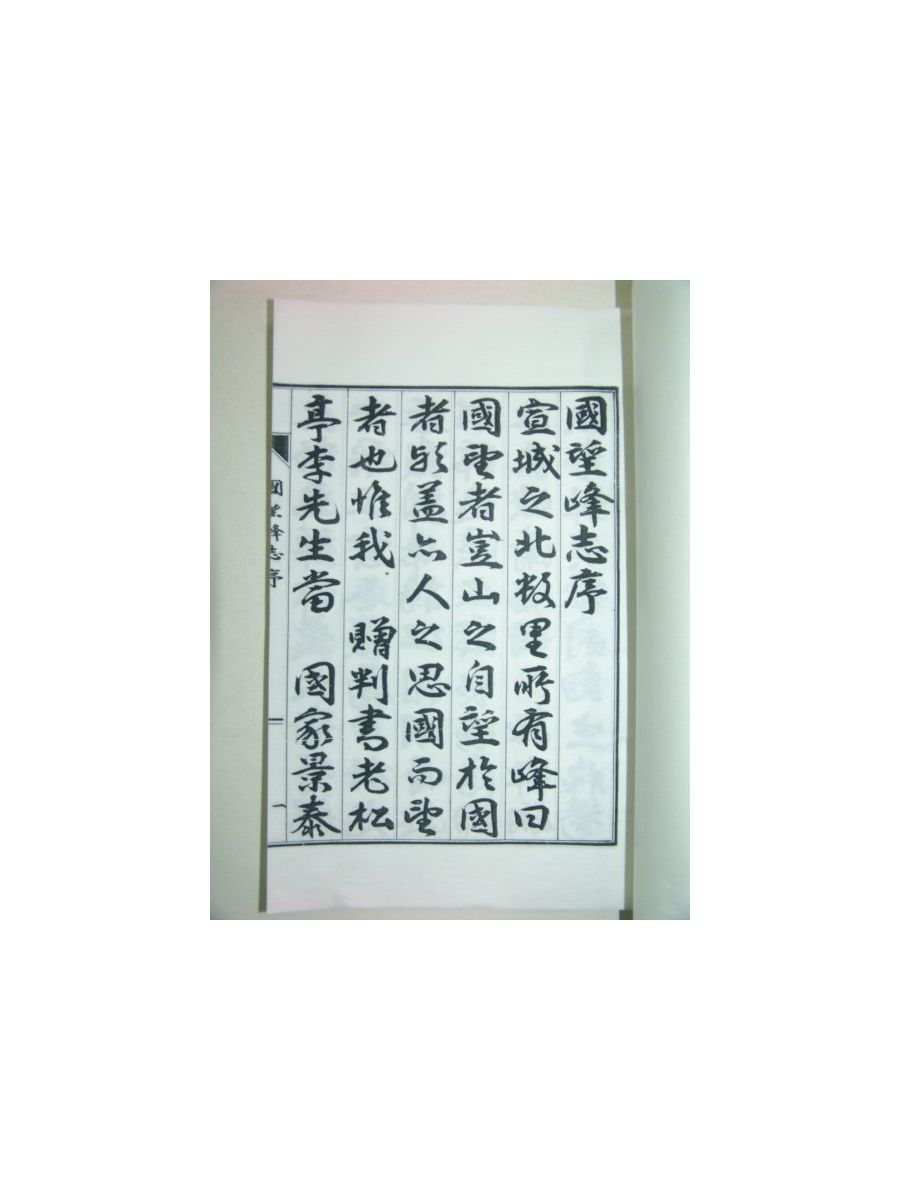 國望峰志序
宣城之北数里所有峰曰
國望者豈山之自望於國
者歟盖亦人之思國而望
者也惟我 贈判書老松
亭李先生當 國家景泰
國望峰志序
一